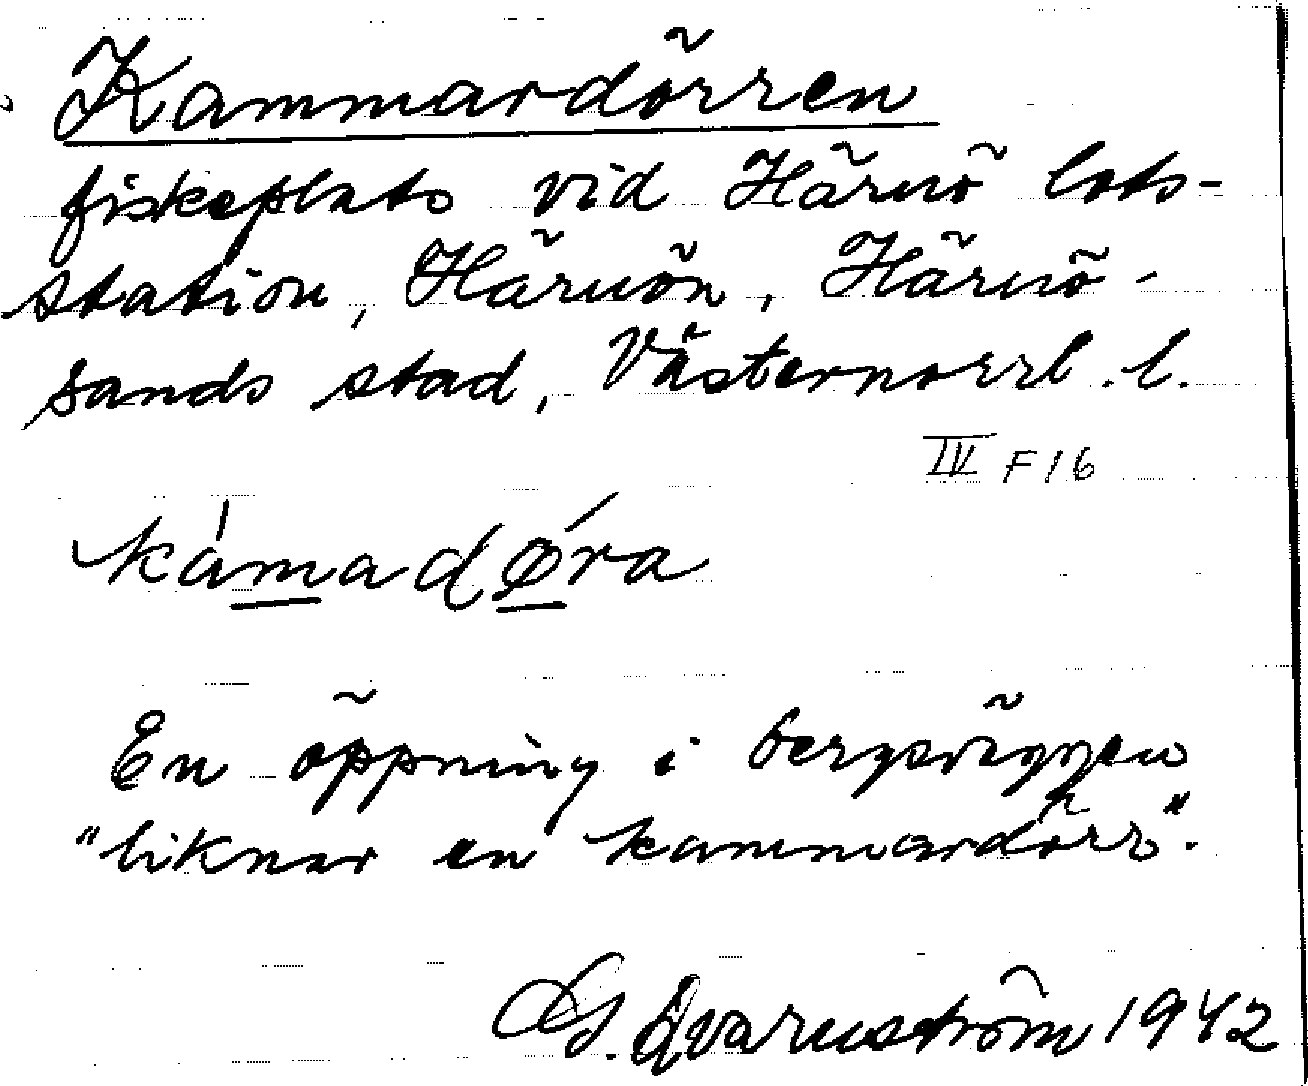 Kammardörren
fiskeplats vid Härnö lots-
station, Härnön, Härnö-
sands stad, Västernorrl. l.
IV F16
kámadǿra
En öppning i bergväggen
"liknar en kammardörr".
G. Qvarnström 1942